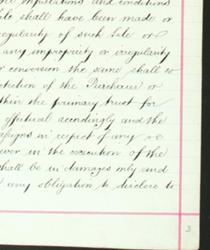 stipulations and conditions
sale shall have been made or
regularity of such sale or
any impropriety or irregularity
concern the same shall
protection of the Purchaser or
within the primary trust for
effectual accordingly and the
assigns in respect of any
ever in the execution of the
shall be in damages only and
any obligation to disclose to
3